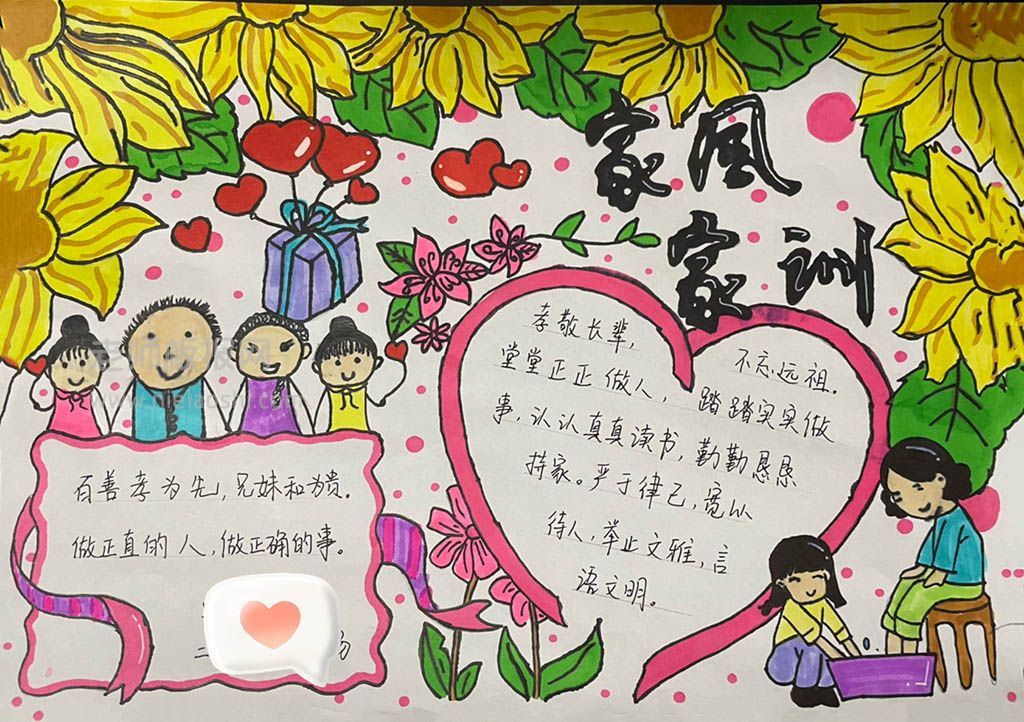 家风
家训
孝敬长辈，
不忘远祖。
堂堂正正做人，踏踏实实做
事，认认真真读书，勤勤恳恳
持家。严于律己，宽以
待人，举止文雅，言
语文明。
百善孝为先，兄妹和为贵。
做正直的人，做正确的事。